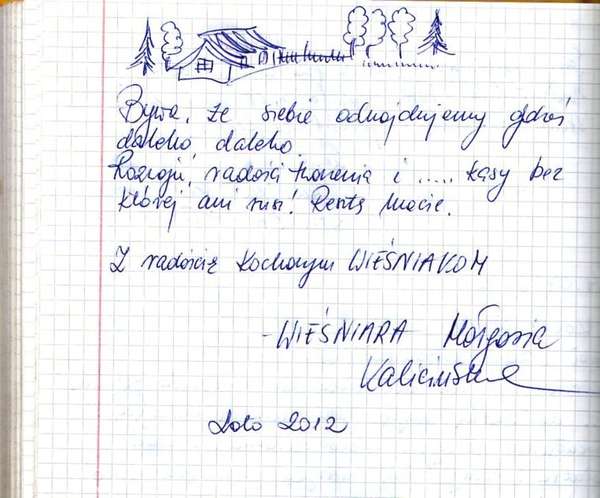 Bywa, że siebie odnajdujemy gdzieś
daleko daleko.
Rozwoju, radości tworzenia i ..... kasy bez
której ani rusz! Resztę macie.
Z radością Kochanym WIEŚNIAKOM
- WIEŚNIARA Małgosia
Kalicińska
Lato 2012